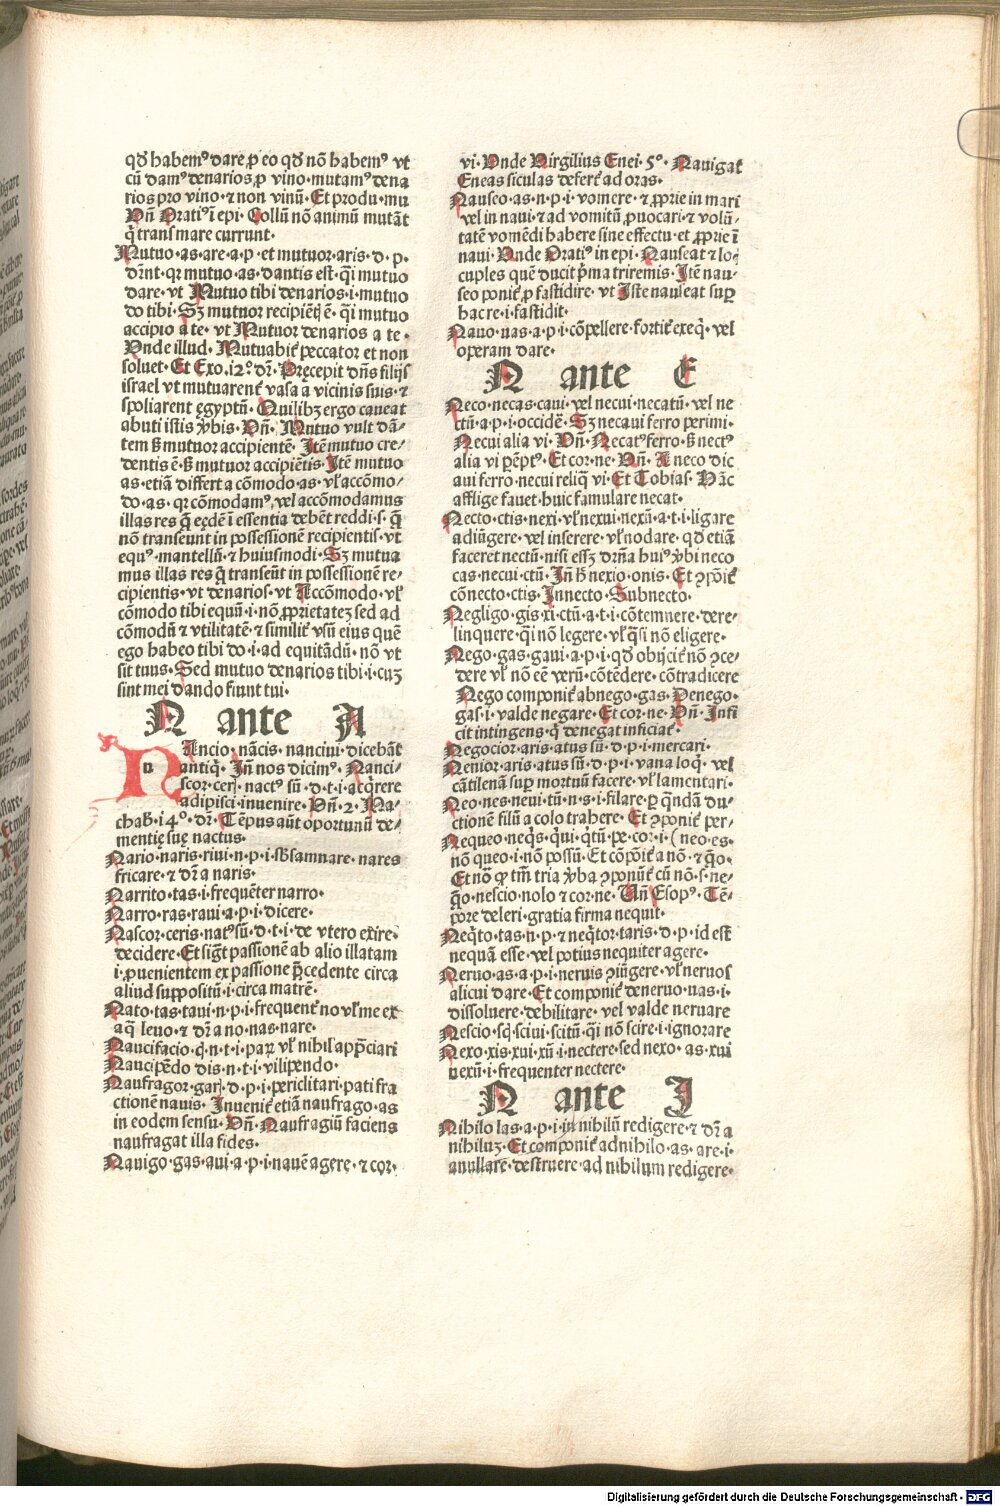 qđ habemꝰ dare ꝓ eo qđ nõ habemꝰ vt
cũ damꝰ denarios ꝓ vino· mutamꝰ dena
rios pro vino· ⁊ non vinũ· Et produ· mu
Vñ Oratiꝰ ĩ epi· Collũ nõ animũ mutãt
q̃ trans mare currunt·
Mutuo·as·are·a·p· et mutuor·aris·d·p·
dr̃nt· qr mutuo·as·dantis est· q̃i mutuo
dare· vt Mutuo tibi denarios·i·mutuo
do tibi· Sꝫ mutuor recipiẽtis ẽ· q̃i mutuo
accipio a te· vt Mutuor denarios a te·
Vnde illud· Mutuabit̃ peccator et non
soluet· Et Exo· i2°· dr̃· Pręcepit dñs filijs
israel vt mutuarent̃ vasa a vicinis suis· ⁊
spoliarent ęgyptũ· Quilibꝫ ergo caueat
abuti istis v̓bis· Vñ· Mutuo vult dã-
tem sꝫ mutuor accipientẽ· Itẽ mutuo cre-
dentis ẽ· sꝫ mutuor accipiẽtis· Itẽ mutuo
as· etiã differt a cõmodo·as· vł accõmo-
do·as· qr cõmodamꝰ, vel accõmodamus
illas res q̃ ęędẽ ĩ essentia debẽt reddi· s· q̃
nõ transeunt in possessionẽ recipientis· vt
equꝰ· mantellũ· ⁊ huiusmodi· Sꝫ mutua
mus illas res q̃ transeũt in possessionẽ re-
cipientis· vt denarios· vt Accõmodo· vł
cõmodo tibi equũ· i· nõ ꝓprietatez sed ad
cõmodũ ⁊ vtilitatẽ· ⁊ similit̃ vsũ eius quẽ
ego habeo tibi do· i· ad equitãdũ· nõ vt
sit tuus· Sed mutuo denarios tibi· i· cuꝫ
sint mei dando fiunt tui·
N ante A
n
NAncio· nãcis· nanciui· dicebãt
antiq̃· Iñ nos dicimꝰ· Nanci-
scor·ceris· nactꝰ sũ·d·t·i·acq̃rere
adipisci·inuenire· Vñ·2· Ma-
chab̃· i4°· dr̃· Tẽpus aũt oportunũ de-
mentię suę nactus·
Nario·naris·riui·n·p·i·sb̃sannare· nares
fricare· ⁊ dr̃ a naris·
Narrito·tas·i·frequẽter narro·
Narro·ras·raui·a·p·i·dicere·
Nascor·ceris·natꝰ sũ·d·t·i·de vtero exire·
decidere· Et sigt̃ passionẽ ab alio illatam
i·ꝓuenientem ex passione p̃cedente circa
aliud suppositũ·i·circa matrẽ·
Nato·tas·taui·n·p·i·frequent̃ no vł me ex
aq̃ leuo· ⁊ dr̃ a no·nas·nare·
Naucifacio·q·n·t·i·paꝝ vł nihil app̃ciari
Naucipẽdo dis·n·t·i·vilipendo·
Naufragor·garis·d·p·i·periclitari·pati fra
ctionẽ nauis· Inuenit̃ etiã naufrago·as
in eodem sensu· Vñ· Naufragiũ faciens
naufragat illa fides·
Nauigo·gas·aui·a·p·i·nauẽ agere· ⁊ cor·
vi· Vnde Virgilius Enei· 5°· Nauigat
Eneas siculas defert̃ ad oras·
Nauseo·as·n·p·i·vomere· ⁊ ꝓprie in mari
vel in naui· ⁊ ad vomitũ ꝓuocari· ⁊ volũ-
tatẽ vomẽdi habere sine effectu· et ꝓprie ĩ
naui· Vnde Oratiꝰ in epi· Nauseat ⁊ lo-
cuples quẽ ducit p̃ma triremis· Itẽ nau-
seo ponit̃ ꝓ fastidire· vt Iste nauseat suꝑ
hac re·i·fastidit·
Nauo·uas·a·p·i·cõpellere·fortit̃ exeq̃· vel
operam dare·
N ante E
Neco·necas·caui· vel necui·necatũ· vel ne
ctũ·a·p·i·occidẽ· Sꝫ necaui ferro perimi·
Necui alia vi· Vñ· Necatꝰ ferro· sꝫ nectꝰ
alia vi perẽptꝰ· Et cor·ne· Vñ· A neco dic
aui ferro·necui reliq̃ vi· Et Tobias· Hãc
afflige fauet·huic famulare necat·
Necto·ctis·nexi·vł nexui·nexũ·a·t·i·ligare
adiũgere· vel inserere· vł nodare· qđ etiã
faceret nectũ· nisi essꝫ dr̃ña huiꝰ v̓bi neco
cas·necui·ctũ· Iñ h̃ nexio·onis· Et ꝯpõit̃
cõnecto·ctis· Innecto· Subnecto·
Negligo·gis·xi·ctũ·a·t·i·cõtemnere·dere-
linquere·q̃i nõ legere· vł q̃si nõ eligere·
Nego·gas·gaui·a·p·i·qđ obijcit̃ nõ ꝯce-
dere vł nõ eẽ verũ· cõtẽdere· cõtradicere
Nego componit̃ abnego·gas· Denego·
gas·i·valde negare· Et cor·ne· Vñ· Infi
cit intingens· q̃ denegat inficiat̃·
Negocior·aris·atus sũ·d·p·i·mercari·
Nenior·aris·atus sũ·d·p·i·vana loq̃· vel
cãtilenã suꝑ mortuũ facere· vł lamentari·
Neo·nes·neui·tũ·n·s·i·filare·ꝑ q̃ndã du-
ctionẽ filũ a colo trahere· Et ꝯponit̃ per-
Nequeo·neq̃s·q̃ui·q̃tũ·pe·cor·i· (neo·es·
nõ queo·i·nõ possũ· Et cõpõit̃ a nõ· ⁊ q̃o·
Et nõ ꝙ tm̃ tria v̓ba ꝯponũt̃ cũ nõ·s·ne-
q̃o·nescio·nolo ⁊ cor·ne· Vñ Esopꝰ· Tẽ-
pore deleri·gratia firma nequit·
Neq̃to·tas·n·p· ⁊ neq̃tor·taris·d·p·id est
nequã esse· vel potius nequiter agere·
Neruo·as·a·p·i·neruis ꝯiũgere· vł neruos
alicui dare· Et componit̃ deneruo·uas·i·
dissoluere·debilitare· vel valde neruare
Nescio·sq̃·sciui·scitũ·q̃i nõ scire·i·ignorare
Nexo·xis·xui·xũ·i·nectere·sed nexo·as·xui
nexũ·i·frequenter nectere·
N ante I
Nihilo las·a·p·i·in nihilũ redigere· ⁊ dr̃ a
nihiluꝫ· Et componit̃ adnihilo·as·are·i·
anullare·destruere·ad nihilum redigere·
Digitalisierung gefördert durch die Deutsche Forschungsgemeinschaft - DFG